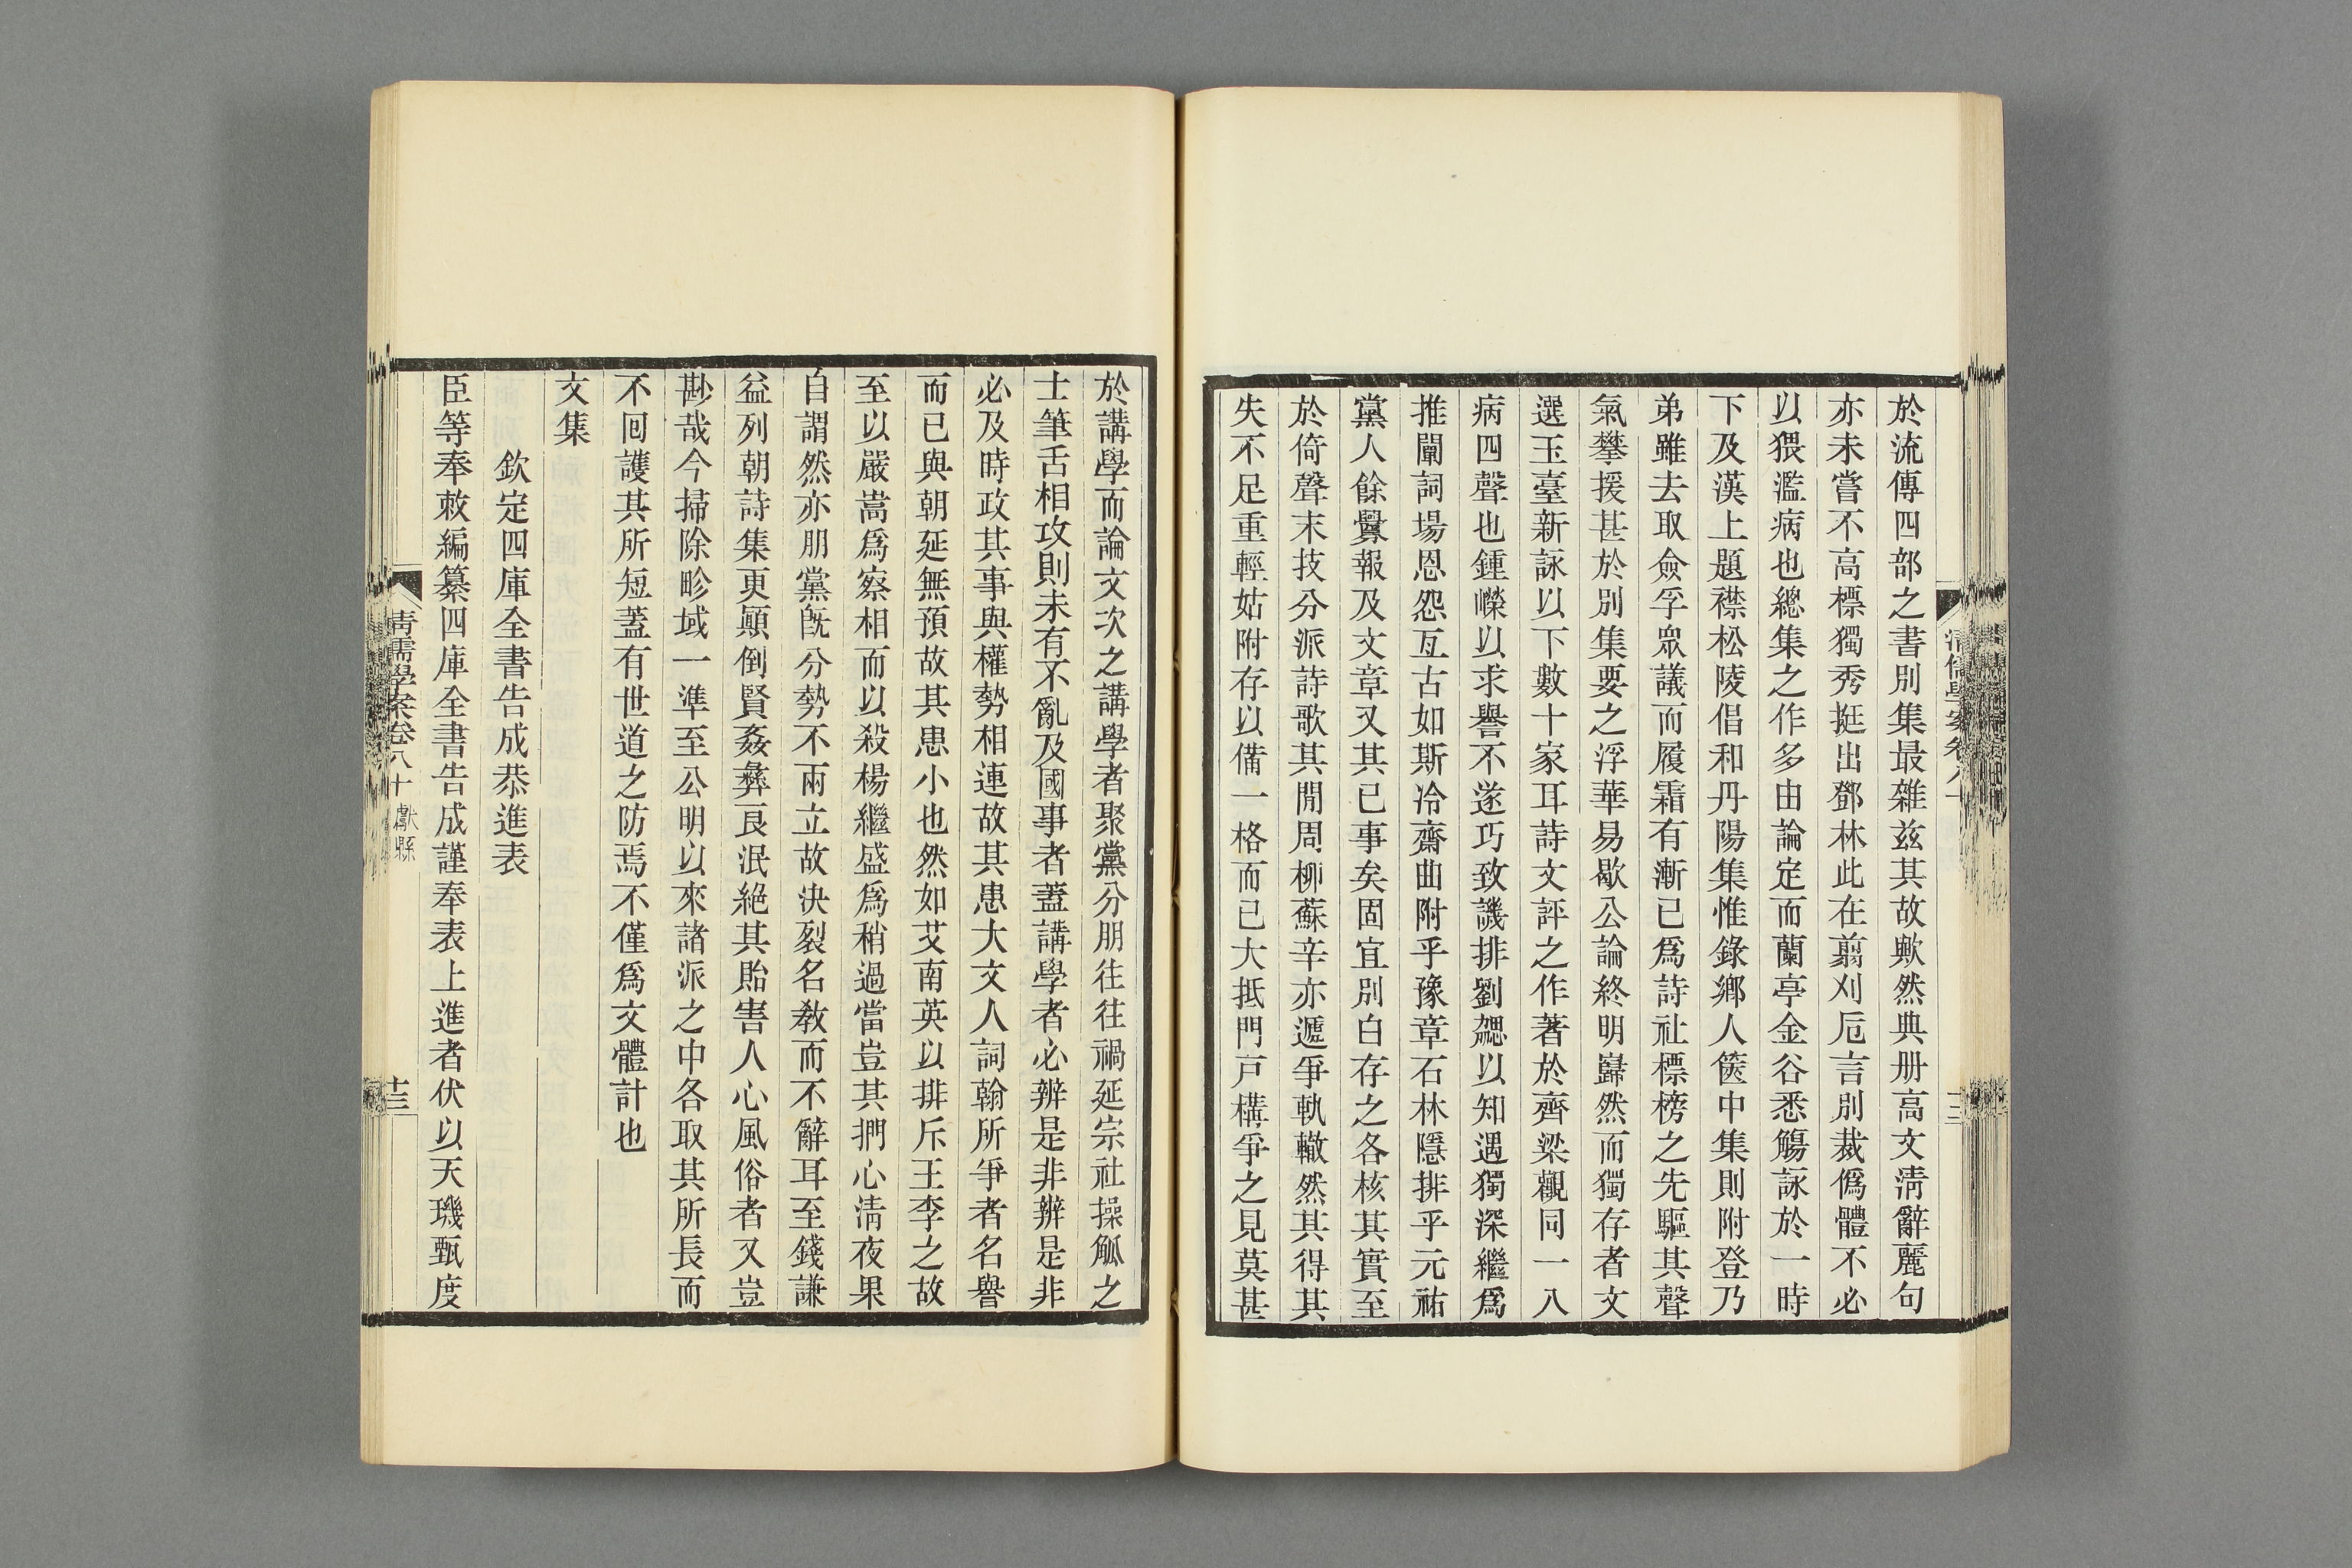 於流傳四部之書別集最雜茲其故歟然典册高文淸辭麗句
亦未嘗不高標獨秀挺出鄧林此在翦刈卮言別裁僞體不必
以猥濫病也總集之作多由論定而蘭亭金谷悉觴詠於一時
下及漢上題襟松陵倡和丹陽集惟錄鄉人篋中集則附登乃
弟雖去取僉孚眾議而履霜有漸已爲詩社標榜之先驅其聲
氣攀援甚於別集要之浮華易歇公論終明巋然而獨存者文
選玉臺新詠以下數十家耳詩文評之作著於齊梁觀同一八
病四聲也鍾嶸以求譽不遂巧致譏排劉勰以知遇獨深繼爲
推闡詞場恩怨亙古如斯冷齋曲附乎豫章石林隱排乎元祐
黨人餘釁報及文章又其已事矣固宜別白存之各核其實至
於倚聲末技分派詩歌其閒周柳蘇辛亦遞爭軌轍然其得其
失不足重輕姑附存以備一格而已大抵門戸構爭之見莫甚
於講學而論文次之講學者聚黨分朋往往禍延宗社操觚之
士筆舌相攻則未有不亂及國事者蓋講學者必辨是非辨是非
必及時政其事與權勢相連故其患大文人詞翰所爭者名譽
而已與朝廷無預故其患小也然如艾南英以排斥王李之故
至以嚴嵩爲察相而以殺楊繼盛爲稍過當豈其捫心淸夜果
自謂然亦朋黨旣分勢不兩立故決裂名敎而不辭耳至錢謙
益列朝詩集更顚倒賢姦彝良泯絕其貽害人心風俗者又豈
尠哉今掃除畛域一準至公明以來諸派之中各取其所長而
不回護其所短蓋有世道之防焉不僅爲文體計也
文集
欽定四庫全書告成恭進表
臣等奉敕編纂四庫全書告成謹奉表上進者伏以天璣甄度
淸儒學案卷八十 獻縣
十三